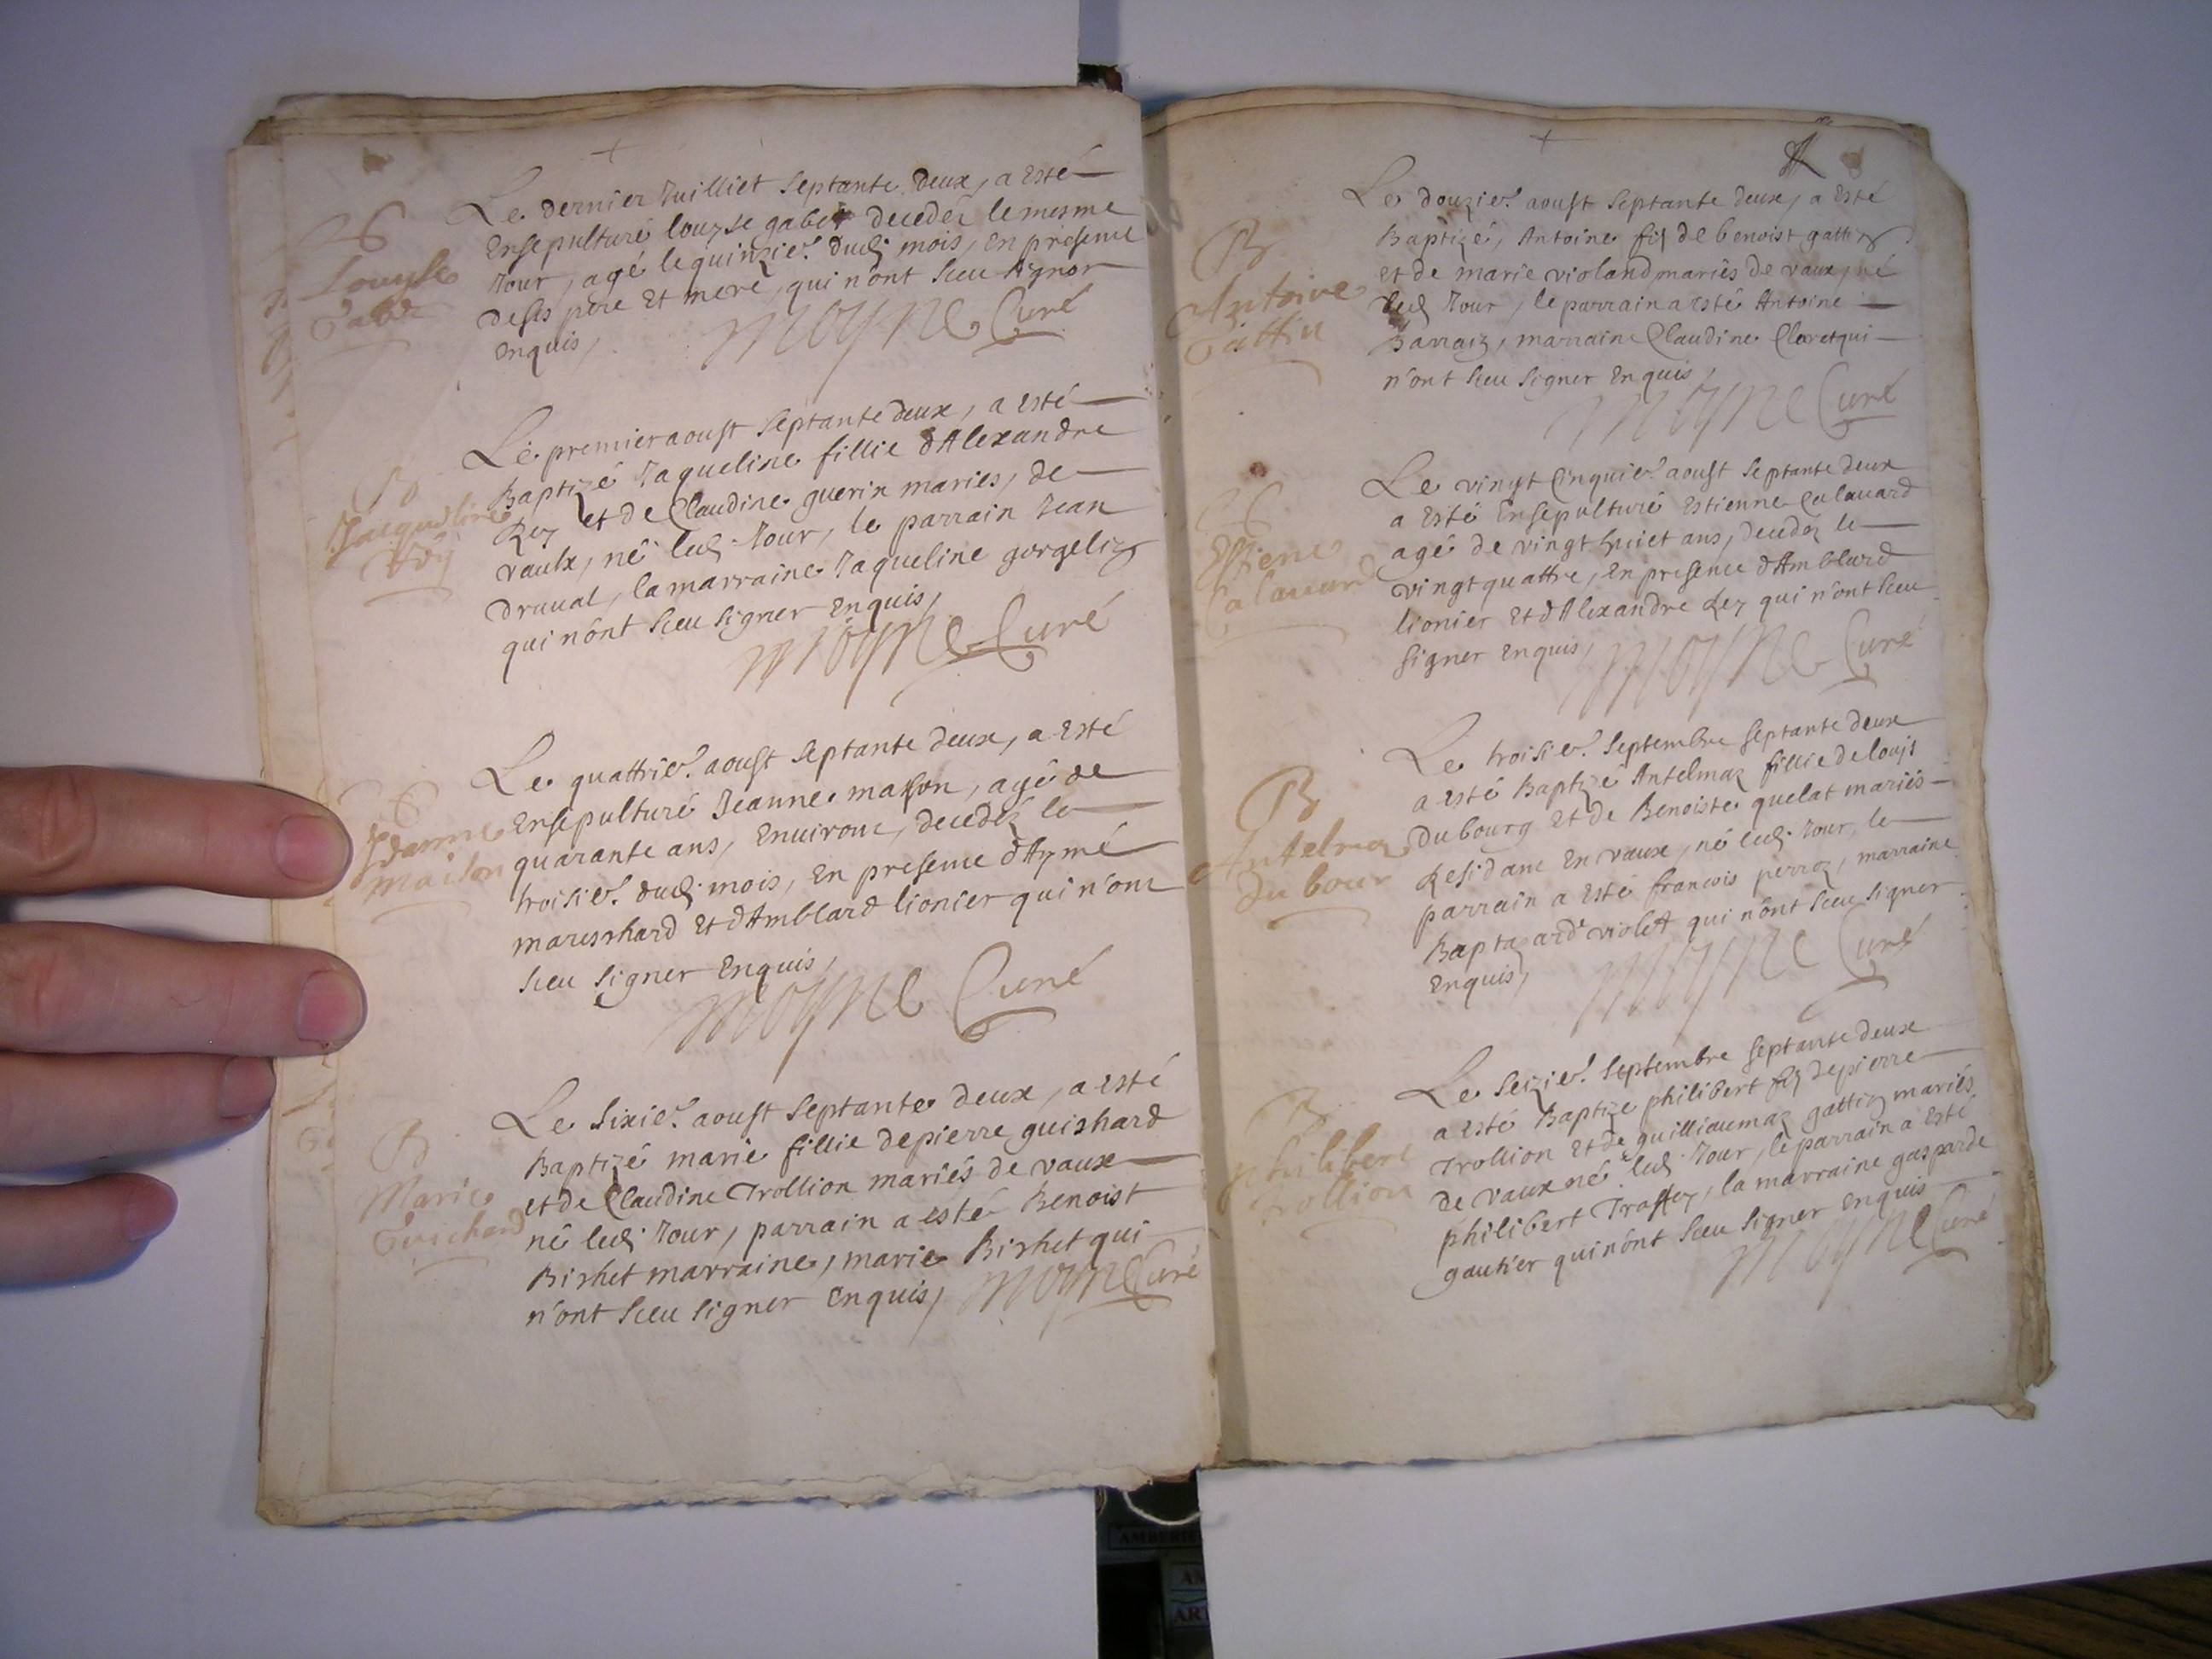 +
Le dernier Juilliet septante deux, a esté
Ensepulturé louyse gabet decedée le mesme
Jour, agé le quinzie. dud. mois, en presence
de ses père et mere, qui n'ont sceu signer
enquis,
Moyne Curé
S
Louyse
Gabet
Le premier aoust septante deux, a esté
Baptizé Jaqueline fillie d'Alexandre
Rey et de Claudine guerin mariés, de
vaulx, né led. Jour, le parrain Jean
druuat, la marraine Jaqueline gorgeliz
qui n'ont sceu signer enquis,
Moyne Curé
B
Jacqueline
Rey
Le quattrie. aoust septante deux, a esté
Ensepulturé Jeanne masson, agé de
quarante ans, Environ, decedéz le
troisie. dud. mois, en presence d'Aymé
mareschard et d'Amblard lionier qui n'ont
sceu signer Enquis,
Moyne Curé
S
Jeanne
maison
Le sixie. aoust septante deux, a esté
Baptizé marie fillie de pierre guishard
et de Claudine Trollion mariés de vaux
né led. Jour, parrain a esté Benoist
Bishet marraine, marie Bishet qui
n'ont sceu signer Enquis,
Moyne Curé
B
Marie
Guichard
+
Le douzie. aoust septante deux, a esté
Baptizé, Antoine fis de benoist gattiz
et de marie violand mariés de vaux, né
led. Jour, le parrain a esté Antoine
Barraiz, marraine Claudine Claret qui
n'ont sceu signer Enquis,
Moyne Curé
B
Antoine
Gattin
Le vingt Cinquie. aoust septante deux
a esté Ensepulturé Estienne Calauard
agé de vingt huict ans, decedéz le
vingt quattre, en presence d'Amblard
lionier et d'Alexandre Rey qui n'ont sceu
signer enquis,
Moyne Curé
S
Estiene
Calauard
Le troisie. septembre septante deux
a esté Baptizé Antelmaz fillie de louys
Dubourg et de Benoiste quelat mariés
Residant En vaux, né led. Jour, le
parrain a esté francois perroz, marraine
Baptazarde violet qui n'ont sceu signer
Enquis,
Moyne Curé
B
Antelmaz
Du bour
Le seizie. septembre septante deux
a esté Baptize philibert fis de pierre
Trollion et de guilliaumaz gattiz mariés
de vaux né led. Jour, le parrain a esté
philibert Traffey, la marraine gasparde
gautier qui n'ont sceu signer Enquis
Moyne Curé
B
philibert
trollion